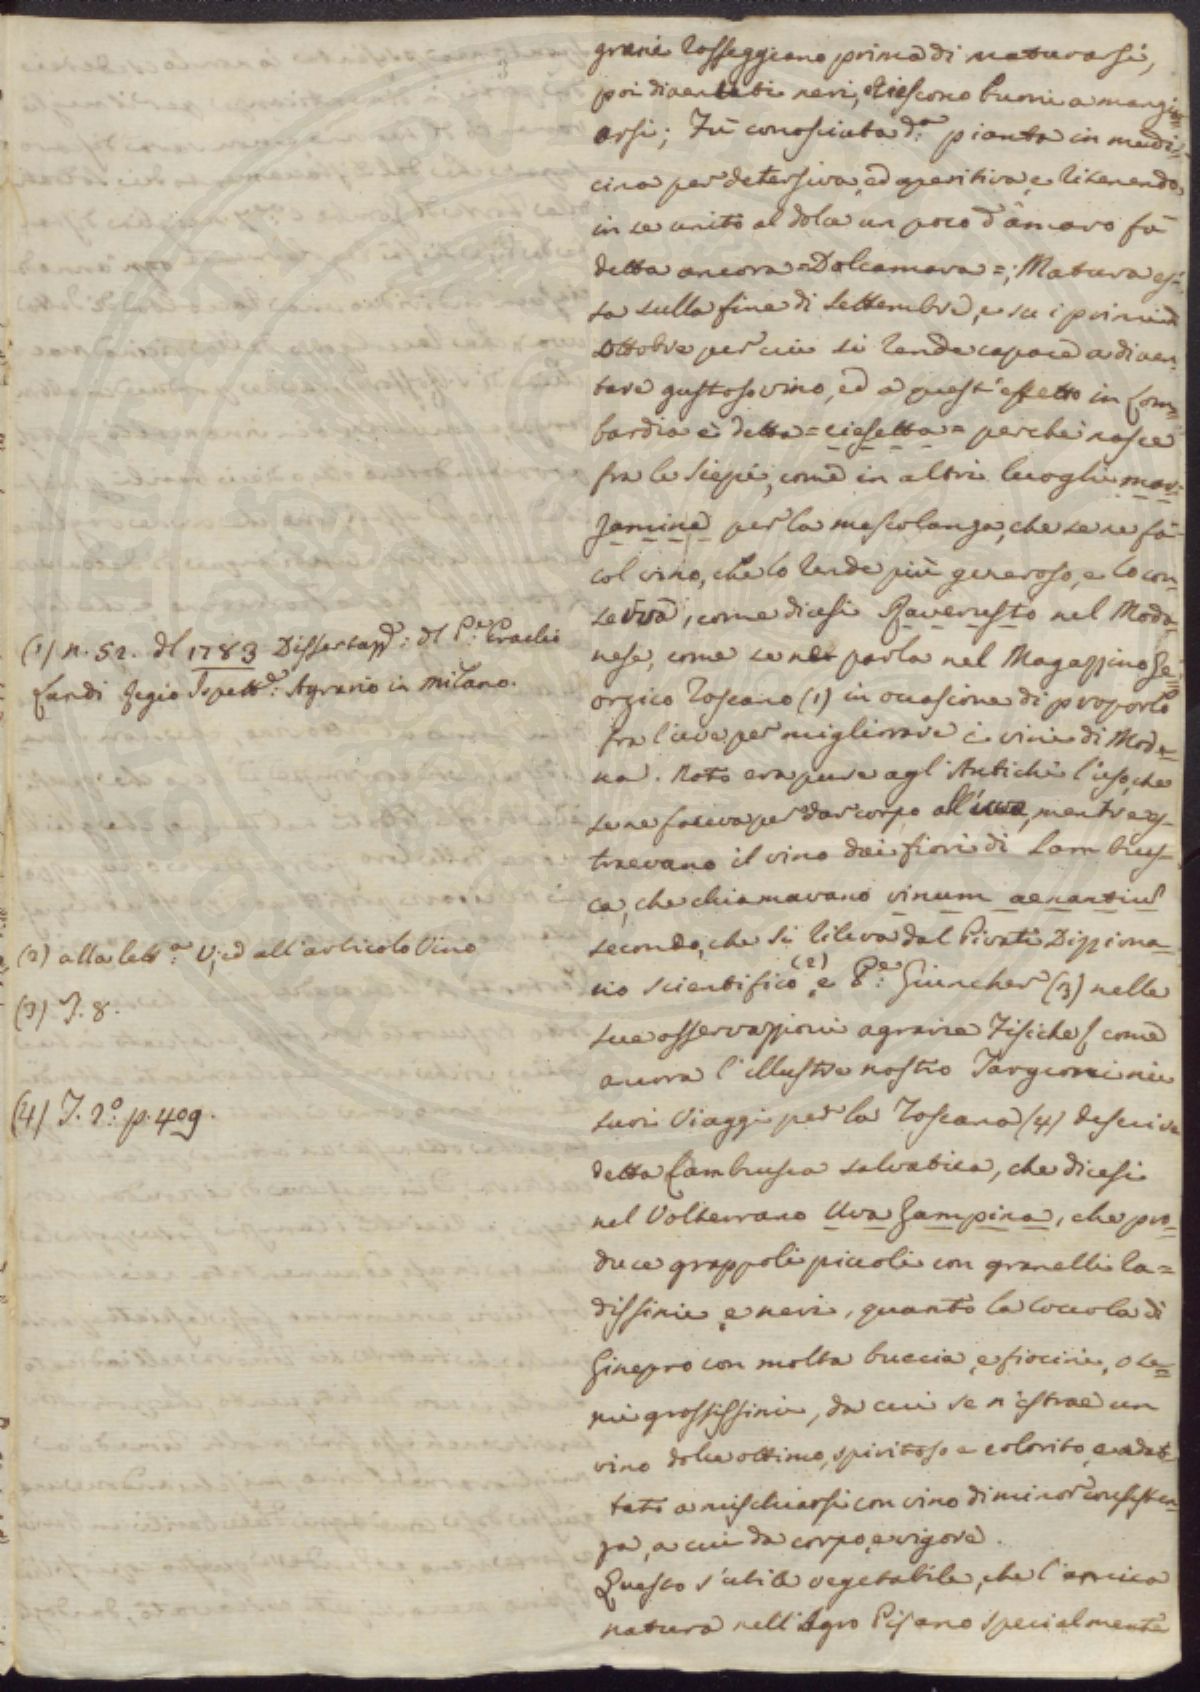 granè rosseggiano prima di maturarsi,
poi diventati neri, riescono buoni a mangi=
arsi; Fù conosciuta d.ª pianta in medi=
cina per detersiva, ed aperitiva, e ritenendo,
in se unito al dolce un poco d'amaro fù
detta ancora =Dolcamara=; Matura es=
sa sulla fine di Settembre, e su i primi d'
Ottobre per cui si rende capace a diven=
tare gustoso vino, ed a quest'effetto in Lom=
bardia è detta =ciesetta= perchè nasce
fra le Siepi, come in altri luoghi mar=
zamina per la mescolanza, che se ne fà
col vino, che lo rende più generoso, e lo con=
serva, come dicesi Raverusto nel Moda=
nese, come se ne parla nel Magazzino Ge=
orgico Toscano (1) in occasione di proporlo
fra l'uve per migliorare i vini di Mode=
na. Noto era pure agl'Antichi l'uso, che
se ne faceva per dar corpo all'uva, mentre es=
traevano il vino dai fiori di Lambrus=
ca, che chiamavano vinum aenantiu͂
secondo, che si rileva dal Pivati Dizziona=
rio scientifico (2), e P.re Giuncher (3) nelle
sue osservazzioni agrarie Fisiche / come
ancora l'illustre nostro Targioni ni
suoi Viaggi per la Toscana (4) descrive
detta Lambrusca salvatica, che dicesi
nel Volterrano Uva Zampina, che pro=
duce grappoli piccoli con granelli ra=
dissimi, e neri, quanto la Coccola di
Ginepro con molta buccia, e fiocini, o se=
mi grossissimi, da cui se n'estrae un
vino dolce ottimo, spiritoso e colorito, e adat=
tato a mischiarsi con vino di minor consisten=
za, a cui da corpo, e vigore.
Questo s'utile vegetabile, che l'amica
natura nell'Agro Pisano specialmente
(1) n. 52. dl 1783 Dissertazz.e: dl P.e: Eraclio
Landi Regio Ispett.e: Agrario in Milano.
(2) alla lett.ª V, ed all'articolo Vino
(3) T. 8.
(4) T. 2.º p. 409.